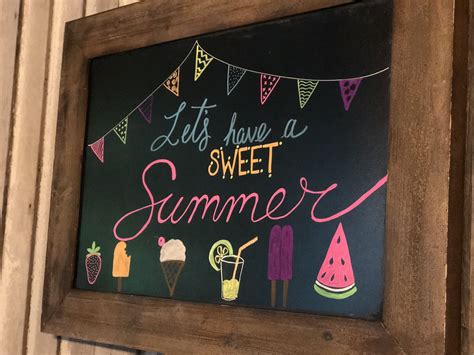 Let's have a
SWEET
Summer